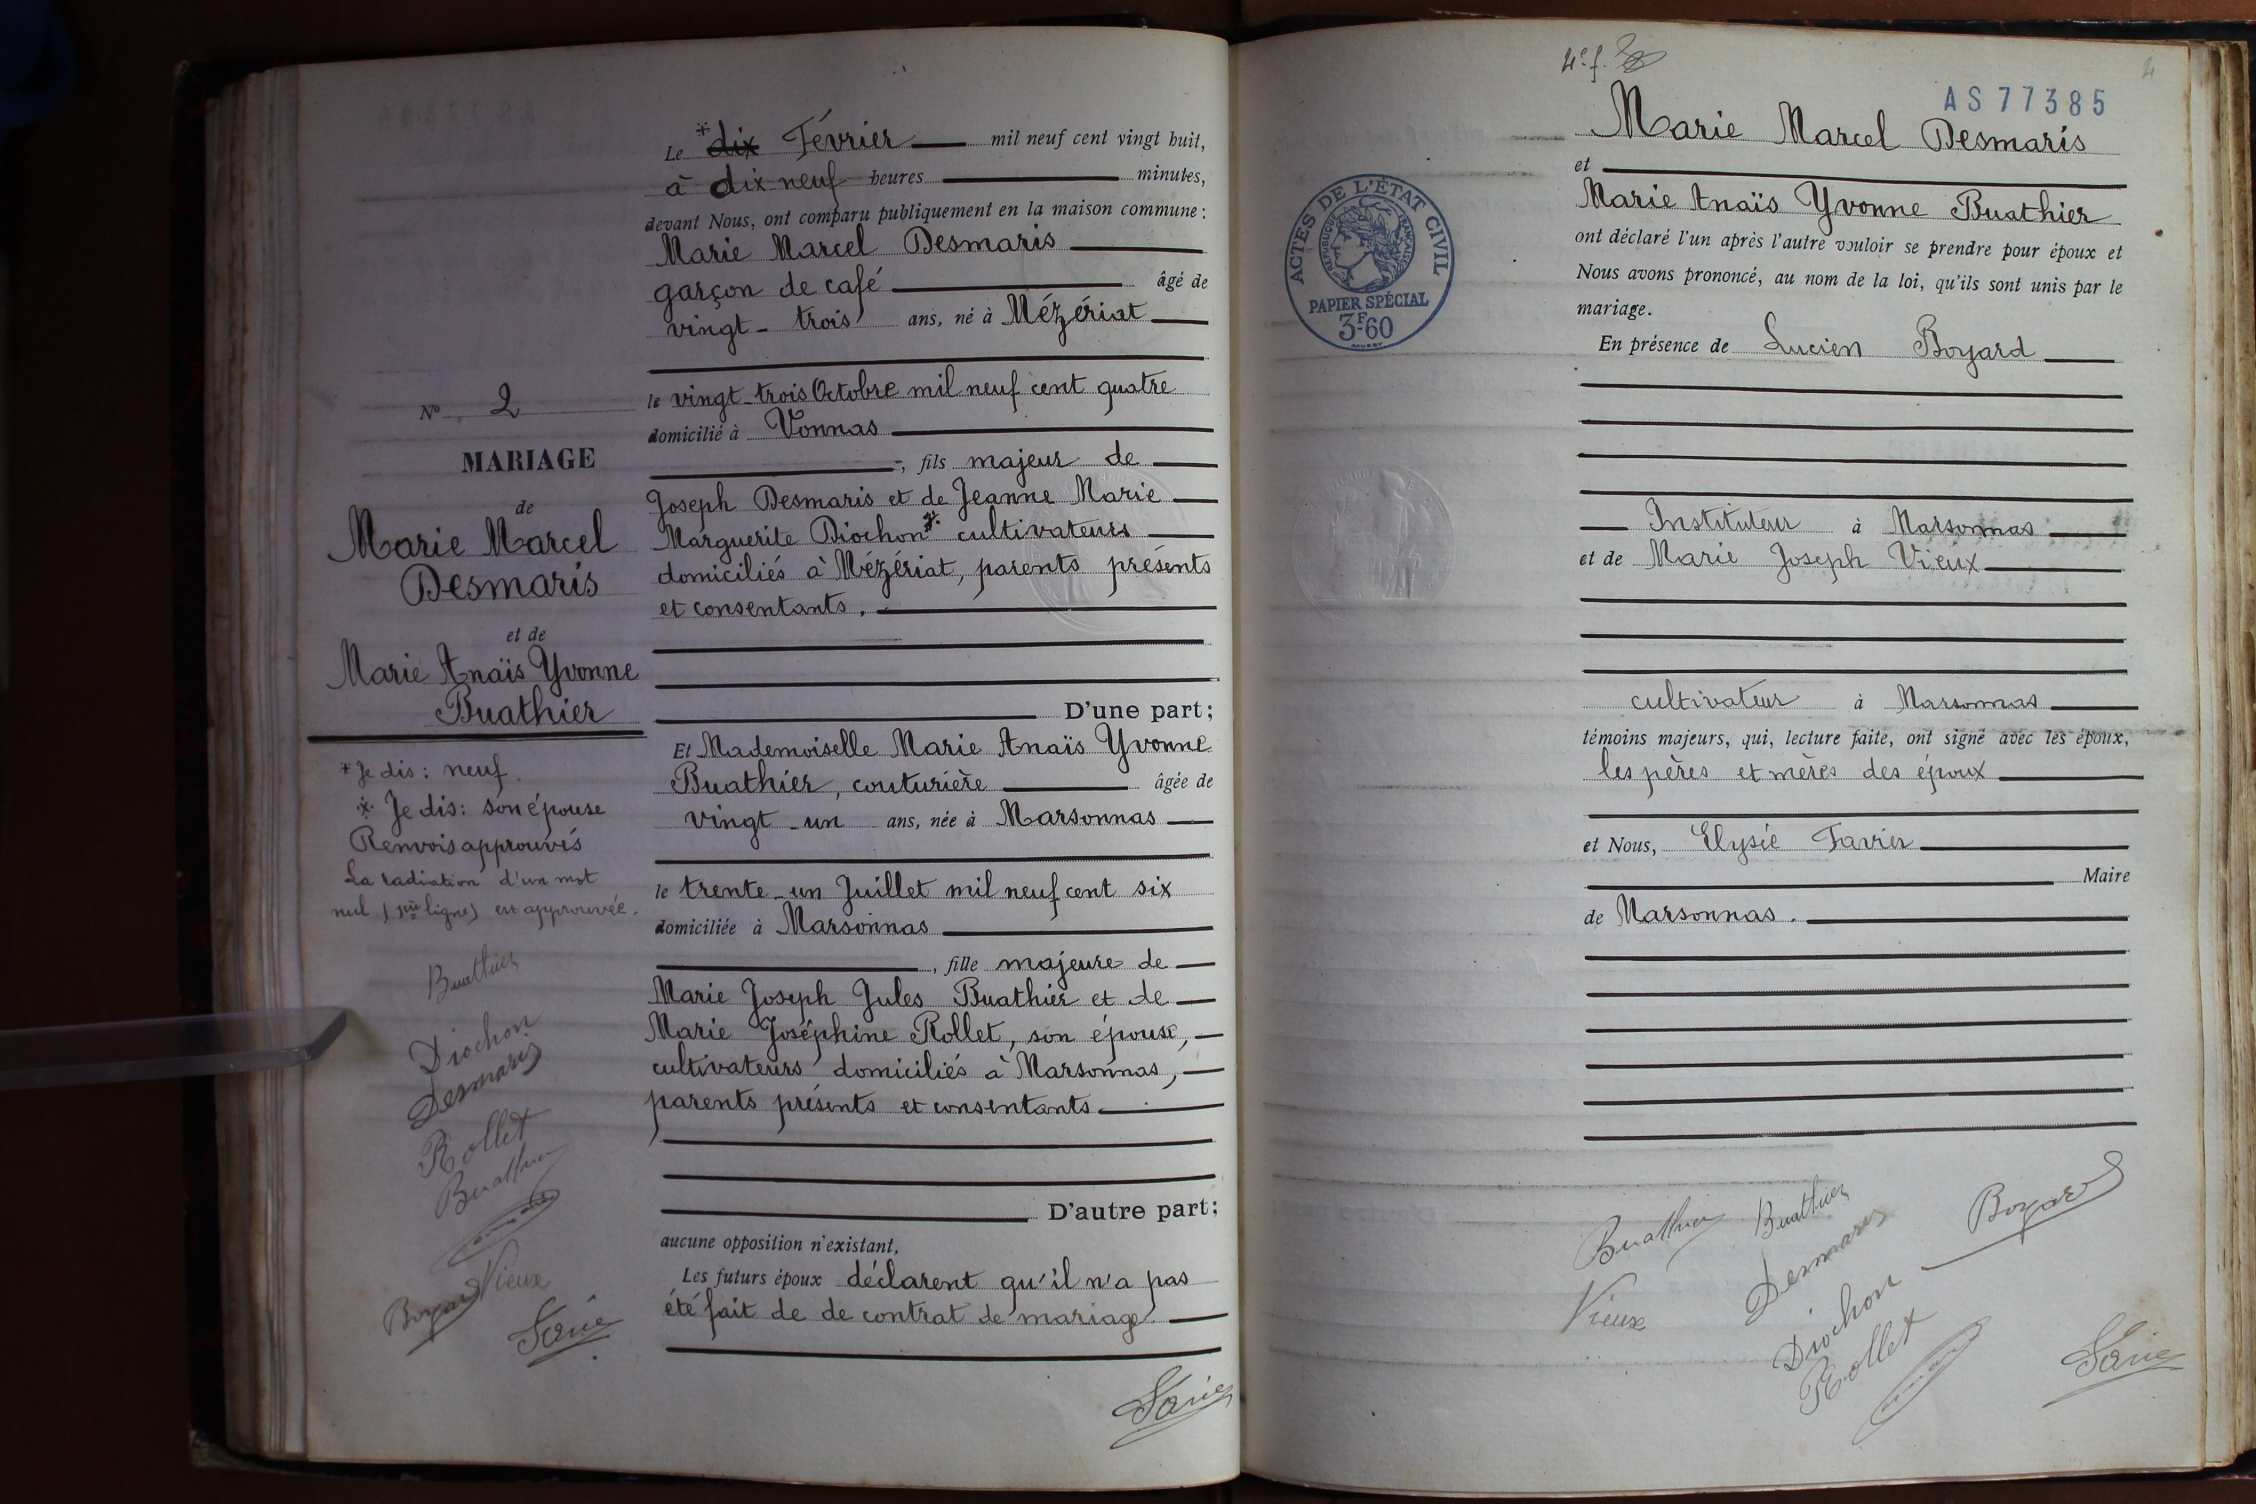 N° 2
MARIAGE
de
Marie Marcel
Desmaris
et de
Marie Anaïs Yvonne
Buathier
* Je dis : neuf.
* Je dis : son épouse
Renvois approuvés
La radiation d'un mot
nul (1ère ligne) est approuvée.
Buathier
Diochon
Desmaris
Rollet
Buathier
Boyard Vieux
Le * dix Février mil neuf cent vingt huit,
à dix neuf heures minutes,
devant Nous, ont comparu publiquement en la maison commune :
Marie Marcel Desmaris
garçon de café âgé de
vingt-trois ans, né à Mézériat
le vingt-trois Octobre mil neuf cent quatre
domicilié à Vonnas
, fils majeur de
Joseph Desmaris et de Jeanne Marie
Marguerite Diochon * cultivateurs
domiciliés à Mézériat, parents présents
et consentants.
D'une part ;
Et Mademoiselle Marie Anaïs Yvonne
Buathier, couturière âgée de
vingt-un ans, née à Marsonnas
le trente-un Juillet mil neuf cent six
domiciliée à Marsonnas
, fille majeure de
Marie Joseph Jules Buathier et de
Marie Joséphine Rollet, son épouse,
cultivateurs domiciliés à Marsonnas,
parents présents et consentants.
D'autre part ;
aucune opposition n'existant,
Les futurs époux déclarent qu'il n'a pas
été fait de de contrat de mariage.
4e f.
4
AS 77385
ACTES DE L'ÉTAT CIVIL
RÉPUBLIQUE FRANÇAISE
PAPIER SPÉCIAL
3F60
Marie Marcel Desmaris
et
Marie Anaïs Yvonne Buathier
ont déclaré l'un après l'autre vouloir se prendre pour époux et
Nous avons prononcé, au nom de la loi, qu'ils sont unis par le
mariage.
En présence de Lucien Boyard
Instituteur à Marsonnas
et de Marie Joseph Vieux
cultivateur à Marsonnas
témoins majeurs, qui, lecture faite, ont signé avec les époux,
les pères et mères des époux
et Nous, Elysée Favier
Maire
de Marsonnas.
Buathier Buathier Boyard
Vieux Desmaris
Diochon
Rollet